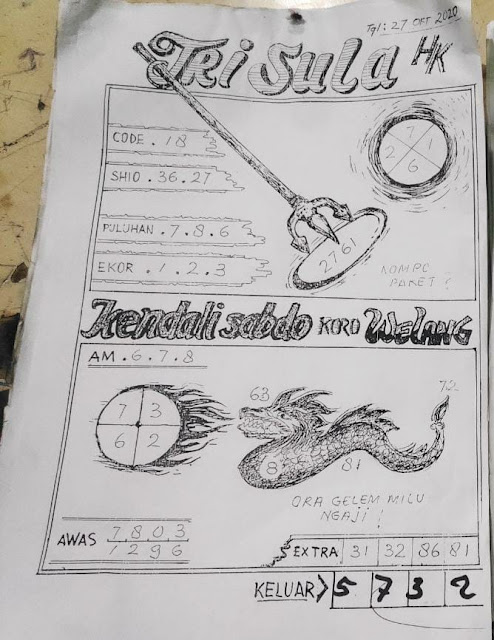 Tgl: 27 OKT 2020
Tri Sula HK
CODE . 18
SHIO . 36.27
PULUHAN . 7.8.6
EKOR . 1.2.3
7
2 1
6
2761
KOMPC
PAKET ?
Kendali sabdo KORO WELANG
AM . 6.7.8
7 3
6 2
63
72
8
81
ORA GELEM MILU
NGAJI !
AWAS 7.8.0.3
1 2 9 6
EXTRA 31 32 86 81
KELUAR> 5 7 3 2